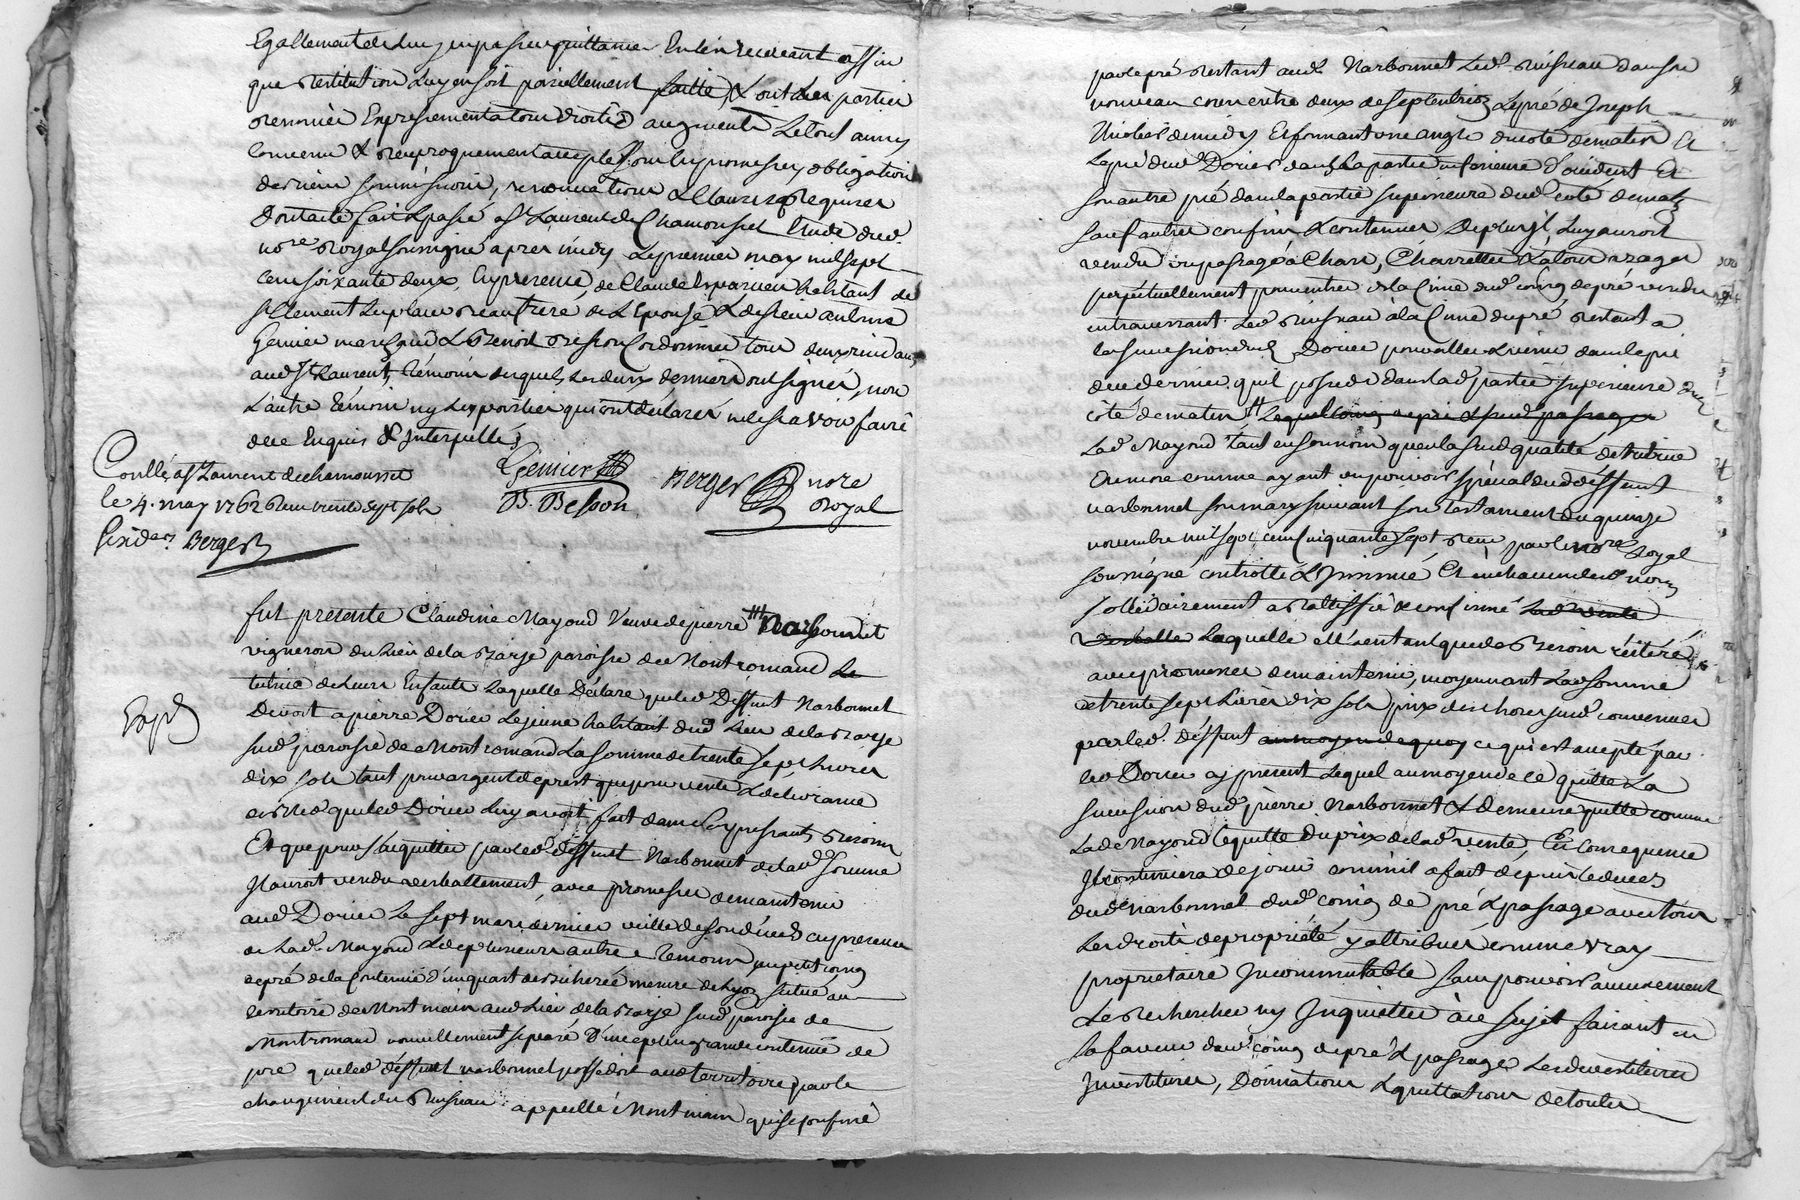 Egallement de luy en passer quittance En len recevant affin
que restitution luy en soit pareillement faitte, & ont les parties
renoncé Expressement a tous droits augments Le tout ainsy
convenu & reciproquement accepté sous les promesses obligations
des biens soumissions, renonciations & Clauses requises
dont acte fait & passé a St Laurent de Chamousset Etude dud.
nore Royal soussigné apres midy le premier may mil sept
cent soixante deux, En presence de Claude habitant de
St Clement beaufrere de L'Epouse & de sieur antoine
Génier marchand & Benoit Besson Cordonnier tous deux residants
aud. St Laurent, témoins desquels les deux derniers ont signés, non
L'autre témoin ny les parties qui ont déclarés ne le sçavoir faire
de ce Enquis & Interpellés
Génier
B. Besson
Berger nore
Royal
Conllé a St Laurent de chamousset
le 4. may 1762 Reçu trente sept sols
six ders. Berger
Expd
fut présente Claudine Mayoud Veuve de pierre Narbonnet
vigneron du Lieu de la Barje paroisse de Montromand Le
tutrice de leurs Enfants Laquelle Déclare que led. Deffunt Narbonnet
Devoit a pierre Dorier Le jeune habitant dud. Lieu de la Barje
sud. paroisse de Montromand La somme de trente sept Livres
dix sols tant pour argent de prest que pour vente & délivrance
de bled que led. Dorier Luy avoit fait dans les pressants besoins
Et que pour s'acquitter par led. deffunt Narbonnet de lad. somme
Il auroit vendu verballement, avec promesses de maintenir
aud. Dorier Le sept mars dernier veille de son décéd en presence
de Lad. Mayoud & de plusieurs autres témoins, un petit coing
de pré de la Contenue d'un quart de bicherée mesure de Lyon situé au
territoire de Montmain aud. Lieu de la Barje sud. paroisse de
Montromand nouvellement separé D'une plus grande contenue de
pré que led. déffunt narbonnet possedoit aud. territoire, par le
changement du Ruisseau appellé Montmain qui se confine
par le pré restant aud. Narbonnet Led. Ruisseau dans son
nouveau cours entre deux de septentrion, Le pré de Joseph
de midy Et formant une angle du coté de matin Et
Le pré dud. Dorier dans la partie inferieure d'occident Et
son autre pré dans la partie superieure dud. coté de matin
sauf autres confins & contenues De plus Il Luy auroit
vendu un passage à Chars, Charrettes & à tous usages
perpétuellement pour entrer en la Cime dud. coing de pré vendu
en traversant Led. Ruisseau à la Cime du pré restant a
la succession dud. Dorier pour aller & venir dans le pré
de ce dernier qu'il possede dans lad. partie superieure dud.
côté de matin, Lequel coing de pré & sud. passage
Lad. Mayoud tant en son nom qu'en la sud. qualité de tutrice
Encore comme ayant un pouvoir spécial dud. déffunt
narbonnet son mary suivant son testament du quinze
novembre mil sept cent cinquante sept reçu par le nore Royal
soussigné controllé & Insinué Et en chacun desd. noms
sollidairement a Rattiffié & confirmé lad. vente
verballe Laquelle elle entend que de besoin réitéré
avec promesses de maintenir, moyennant Lad. somme
de trente sept Livres dix sols prix des choses sud. convenues
par led. déffunt au moyen de quoy ce qui est accepté par
led. Dorier cy present Lequel au moyen de ce quitte La
succession dud. pierre Narbonnet & demeure quitte comme
Lad. Mayoud Le quitte du prix de lad. vente, En Consequence
Il continuera de jouir comme il a fait depuis le décéd
dud. Narbonnet dud. coing de pré & passage avec tous
Les droits de propriété y attribués comme vray
proprietaire Incommutable sans pouvoir aucunement
Le rechercher ny Inquietter à ce sujet faisant en
sa faveur dud. coing de pré & passage Les devestitures
Investitures, Donnations & quittations de toute